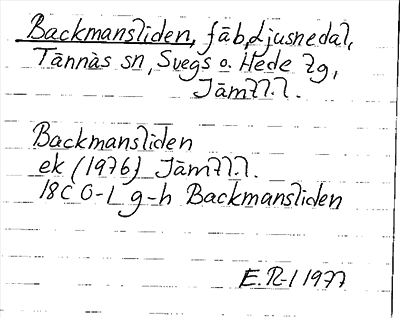 Backmansliden, fäb, Ljusnedal,
Tännäs sn, Svegs o. Hede tg,
Jämtl.l.
Backmansliden
ek (1976) Jämtl.l.
18C 0-L g-h Backmansliden
E.R-l 1977